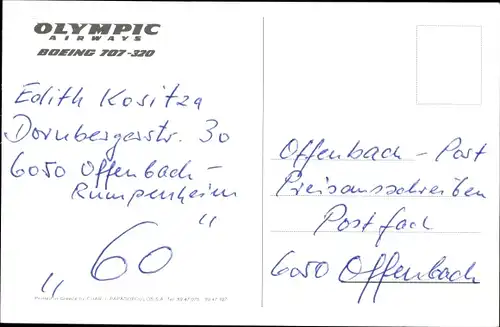 OLYMPIC
AIRWAYS
BOEING 707-320
Edith Kositza
Dornbergerstr. 30
6050 Offenbach-
Rumpenheim
„60"
Offenbach-Post
Preisausschreiben
Postfach
6050 Offenbach
Printed in Greece by